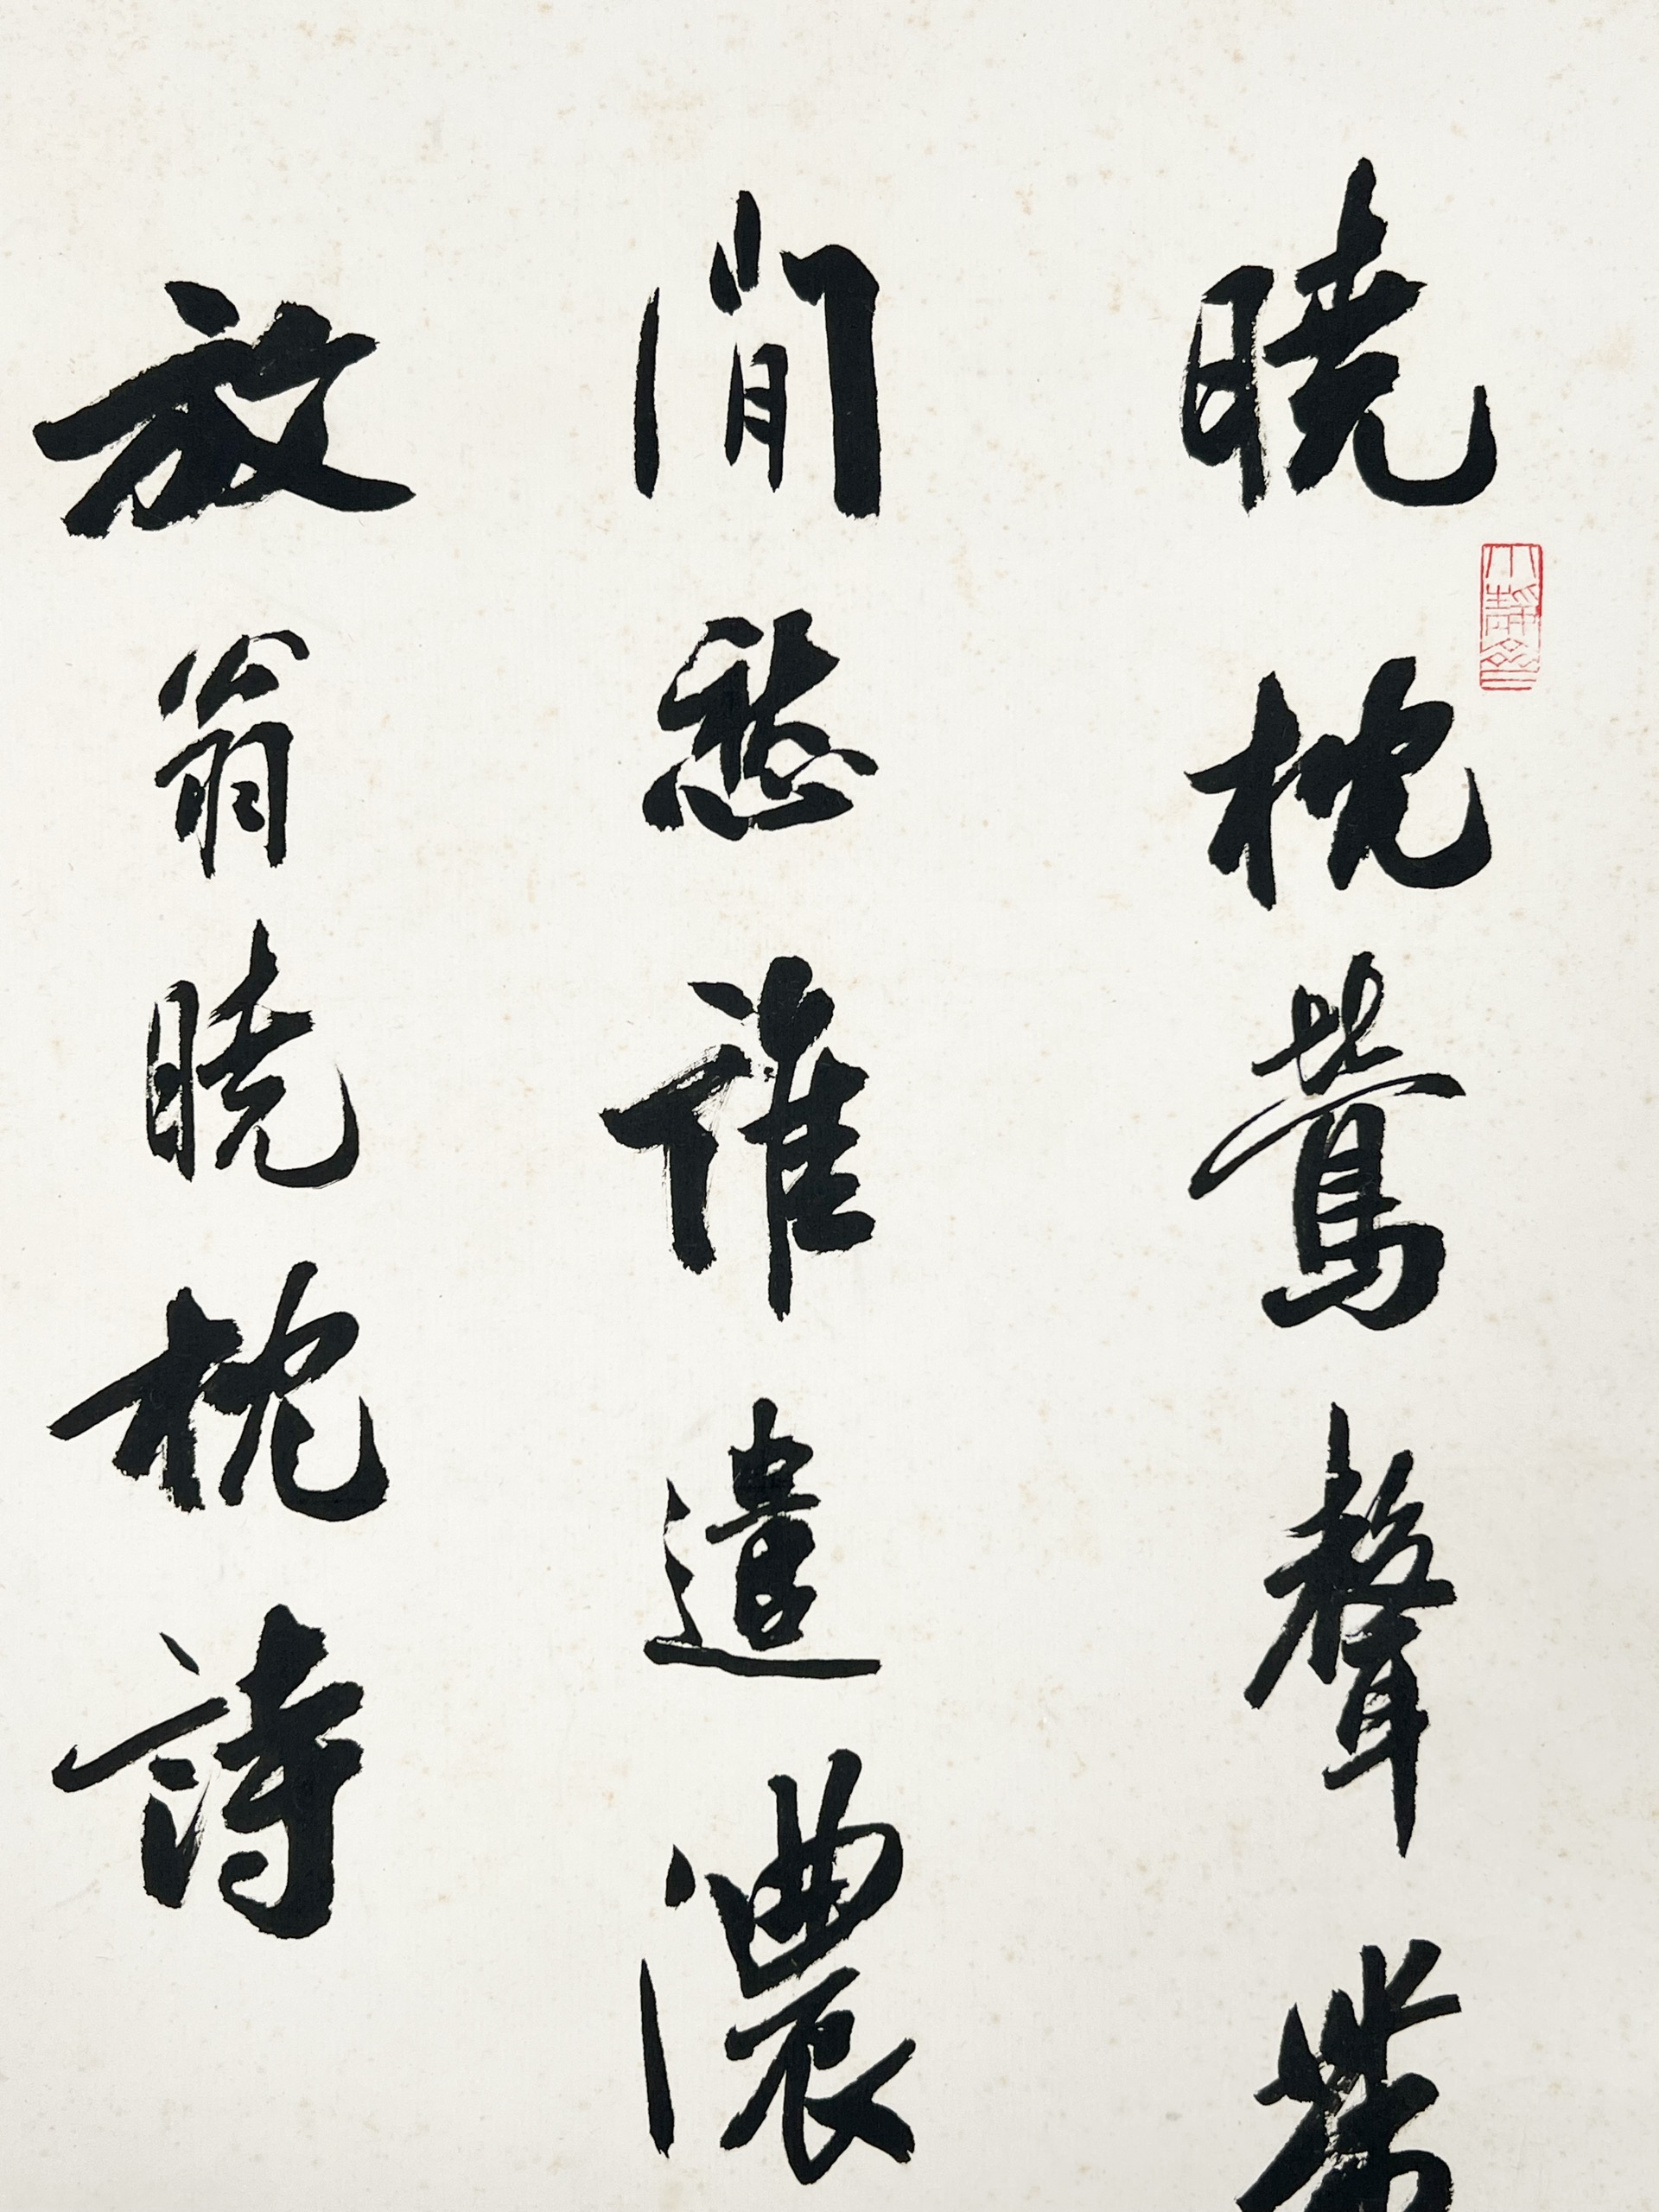 曉枕鶯聲帶
閒愁誰遣濃
放翁曉枕詩